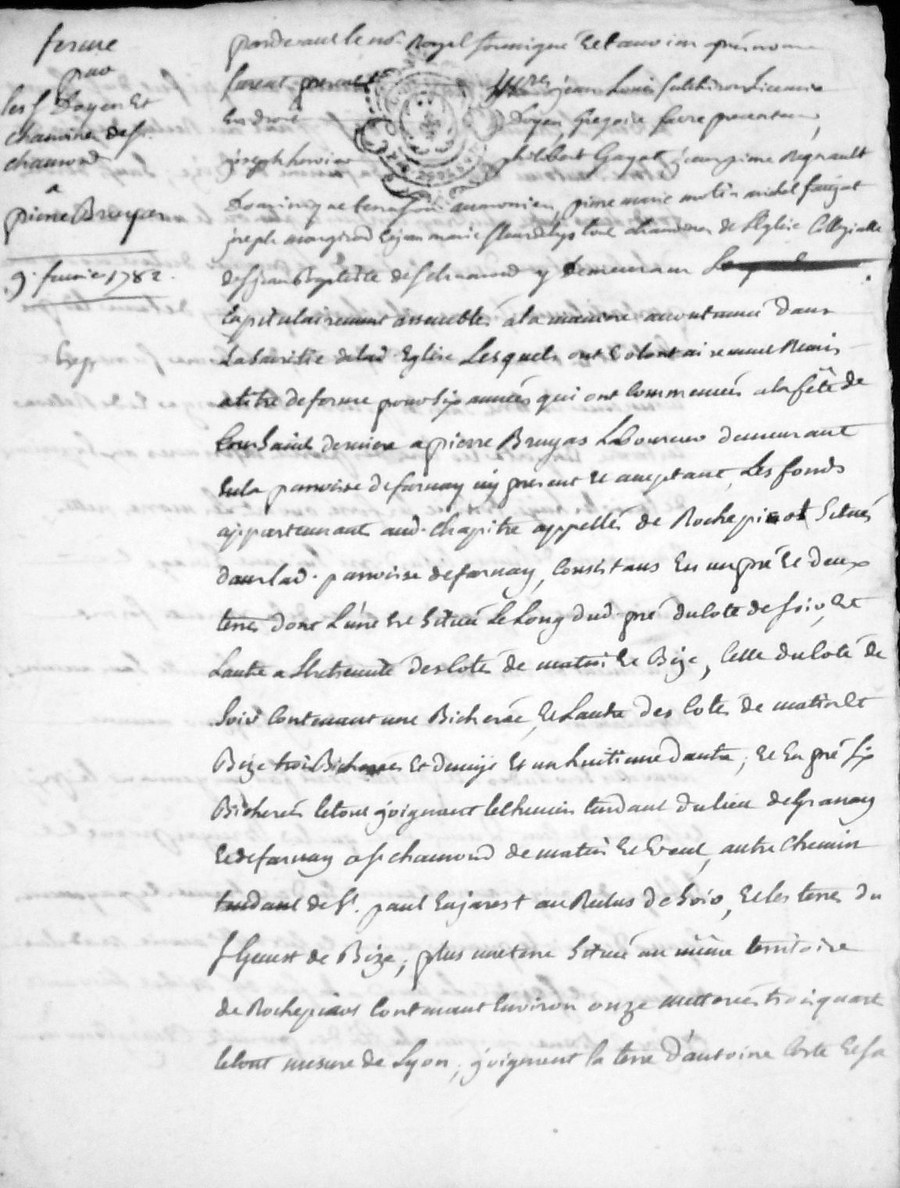 ferme
par
les s.rs Doyen Et
chanoines de st.
chamond
a
pierre Bruyas
9. fevrier 1782.
pardevant le no.re Royal soussigné Et temoins
furent presents Mrs. jean Louis Licencié
En droit Doyen Gregoire favre precenteur,
joseph philibert Gayat, jean pierre Regnault
Dominique terrasson aumonier, pierre marie molin michel
joseph mongirod Et jean marie tous chanoines de L'Eglise Collegialle
de st jean Baptiste de st chamond y Demeurant
Capitulairement assemblés a la maniere accoutumée dans
La sacristie de lad. Eglise Lesquels ont Volontairement Remis
a titre de ferme pour six années qui ont Commencées a la fête de
toussaint derniere a pierre Bruyas Laboureur demeurant
En la parroisse de farnay icy present Et acceptant, Les fonds
appartenant aud. Chapitre appellés de Rochepinot Situés
dans lad. parroisse de farnay, Consistans En un pré Et deux
terres dont L'une Est Située Le Long dud. pré du coté de soir, Et
L'autre a L'extremité des coté de matin Et Bize, Cette du coté de
Soir Contenant une Bicherée, Et L'autre des Cotés de matin Et
Bize trois Bicherées Et demye Et un huitieme d'autre; Et En pré six
Bicherées le tout joignant le chemin tendant du lieu de Granay
Et de farnay a st chamond de matin Et Vent, autre Chemin
tendant de st. paul En jarest au Reclus de Soir, Et les terres du
sr de Bize; plus une terre Située au même territoire
de Contenant Environ onze metterées trois quart
le tout mesure de Lyon, joignant la terre d'antoine Et sa